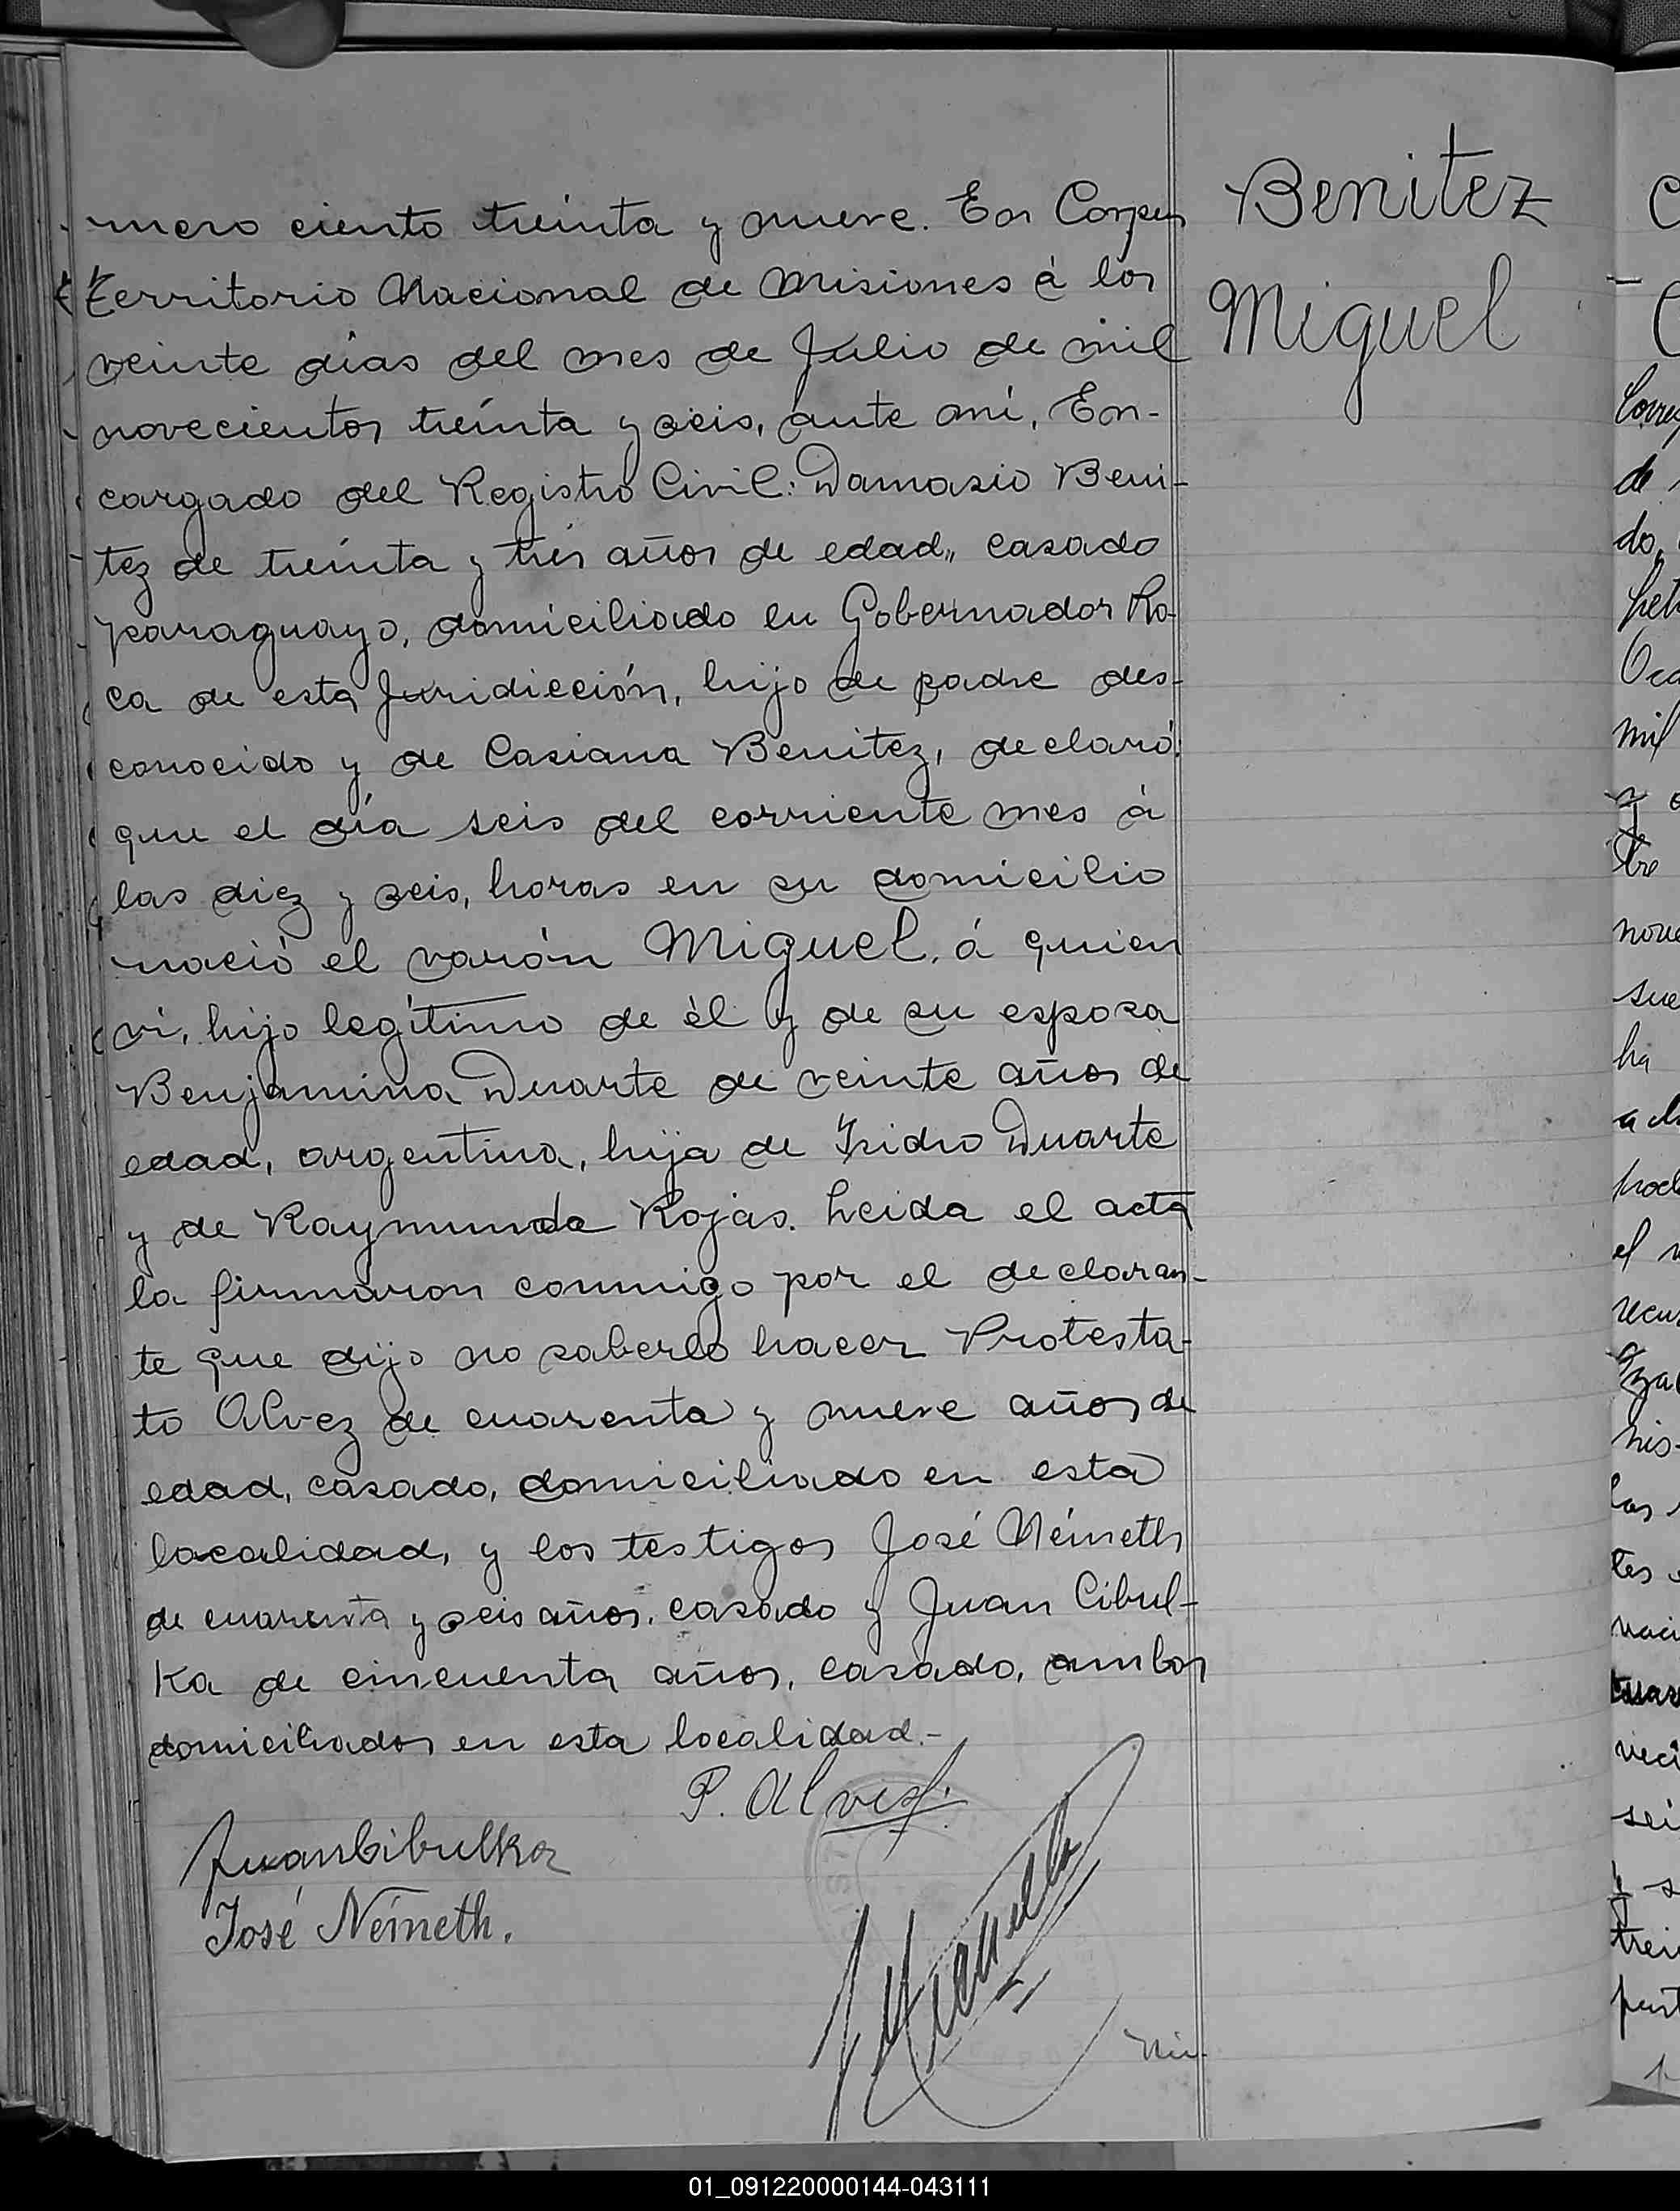 mero ciento treinta y nueve. En Corpus
territorio Nacional de Misiones á los
veinte días del mes de Julio de mil
novecientos treinta y seis, ante mí, En-
cargado del Registro Civil: Damasio Beni-
tez de treinta y tres años de edad,, casado
paraguayo, domiciliado en Gobernador Ro-
ca de esta Juridicción, hijo de padre des-
conocido y de Casiana Benitez, declaró:
que el día seis del corriente mes á
las diez y seis, horas en su domicilio
nació el varón Miguel, á quien
ví, hijo legítimo de él y de su esposa
Benjamina Duarte de veinte años de
edad, argentina, hija de Isidro Duarte
y de Raymunda Rojas. Leida el acta
la firmaron conmigo por el declaran-
te que dijo no saberlo hacer Protesta-
to Alvez de cuarenta y nueve años de
edad, casado, domiciliado en esta
localidad, y los testigos José Németh
de cuarenta y seis años, casado y Juan Cibul-
ka de cincuenta años, casado, ambos
domiciliados en esta localidad.-
P. Alvez.
Juan Cibulka
José Németh.
Nú-
Benitez
Miguel
01_091220000144-043111